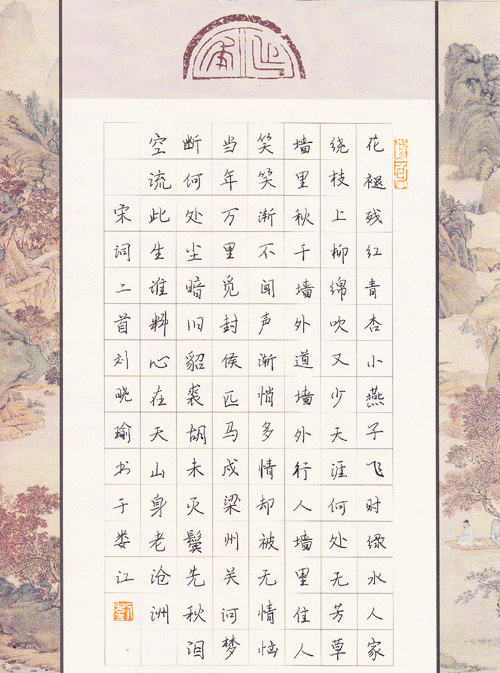 花褪残红青杏小燕子飞时绿水人家
绕枝上柳绵吹又少天涯何处无芳草
墙里秋千墙外道墙外行人墙里住人
笑笑渐不闻声渐悄多情却被无情恼
当年万里觅封侯匹马戍梁州关河梦
断何处尘暗旧貂裘胡未灭鬓先秋泪
空流此生谁料心在天山身老沧洲
宋词二首刘晓瑜书于娄江